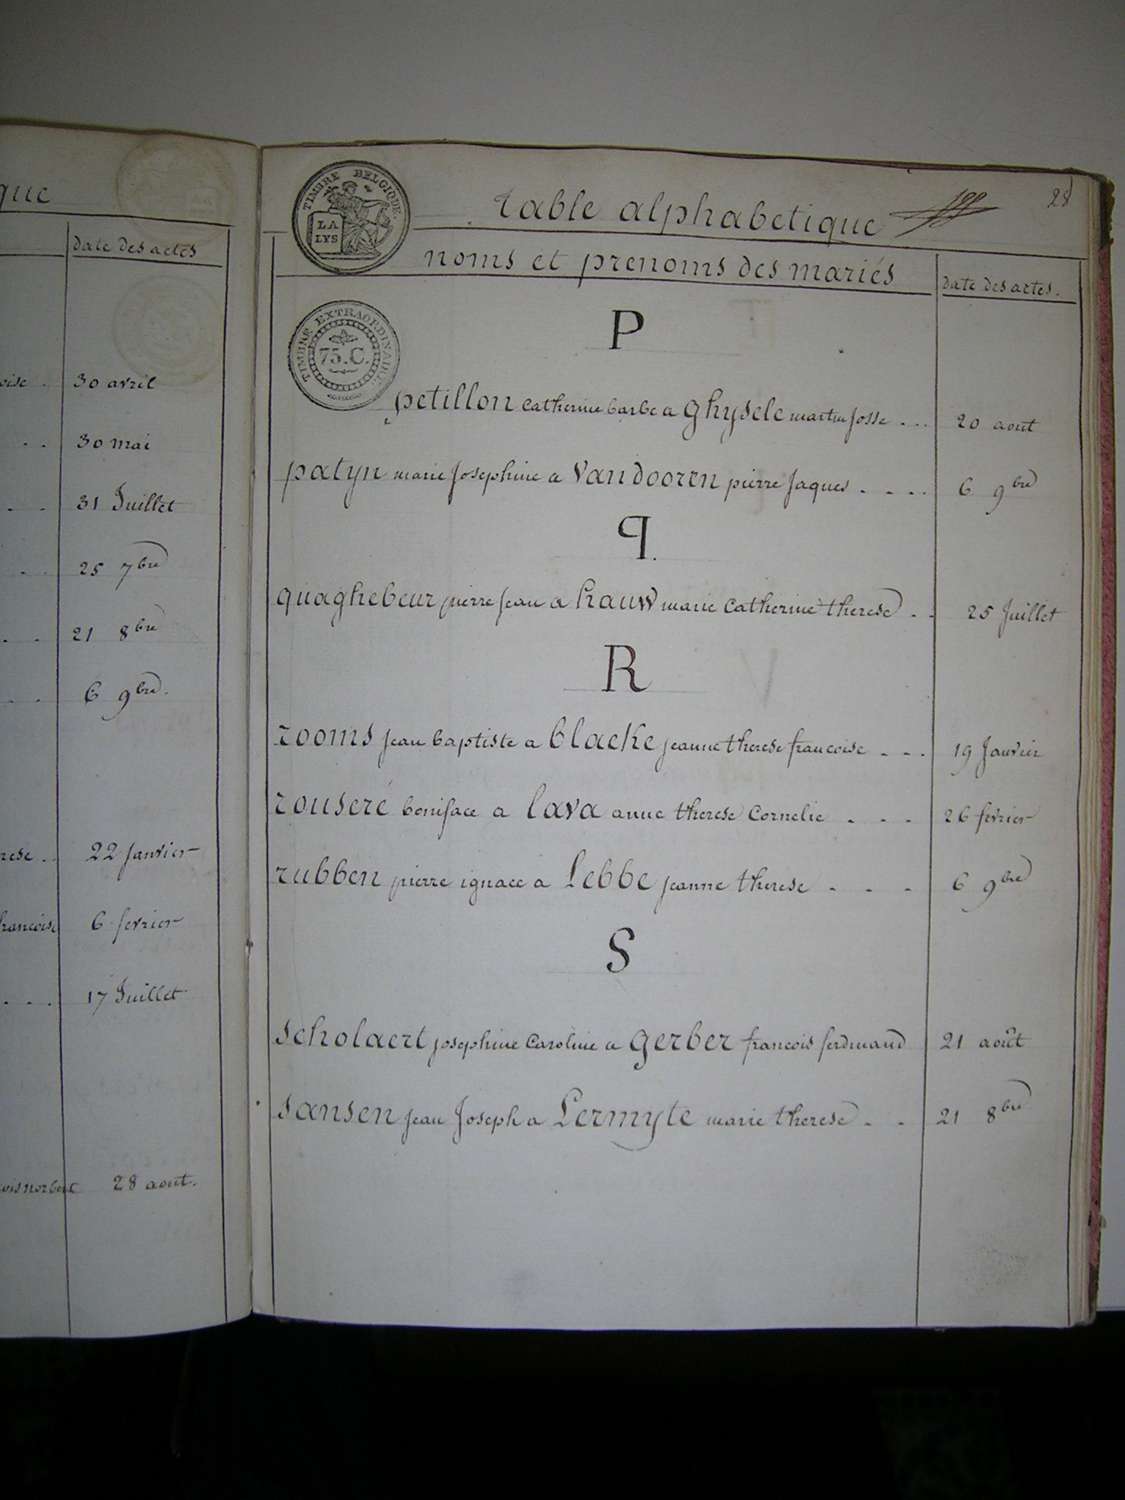 que
date des actes
oise . 30 avril
. . 30 mai
. . 31 Juillet
. . 25 7bre
. . 21 8bre
. . 6 9bre.
rese . . 22 janvier
francoise 6 fevrier
. . . 17 Juillet
oisnorbert 28 aout.
TIMBRE BELGIQUE.
LA
LYS
table alphabetique
28
noms et prenoms des mariés
date des actes.
TIMBRE EXTRAORDINAIRE
75.C.
P
petillon catherine barbe a ghysele martin josse . . . 20 aout
patyn marie Josephine a Vandooren pierre Jaques . . . . 6 9bre
q.
quaghebeur pierre jean a hauw marie catherine therese . . 25 Juillet
R
rooms jean baptiste a blacke jeanne therese francoise . . . 19 Janvier
rouseré boniface a lava anne therese cornelie . . . 26 fevrier
rubben pierre ignace a Lebbe jeanne therese . . . 6 9bre
S
scholaert josephine caroline a gerber francois ferdinand 21 août
sansen jean Joseph a Lermyte marie therese . . 21 8bre